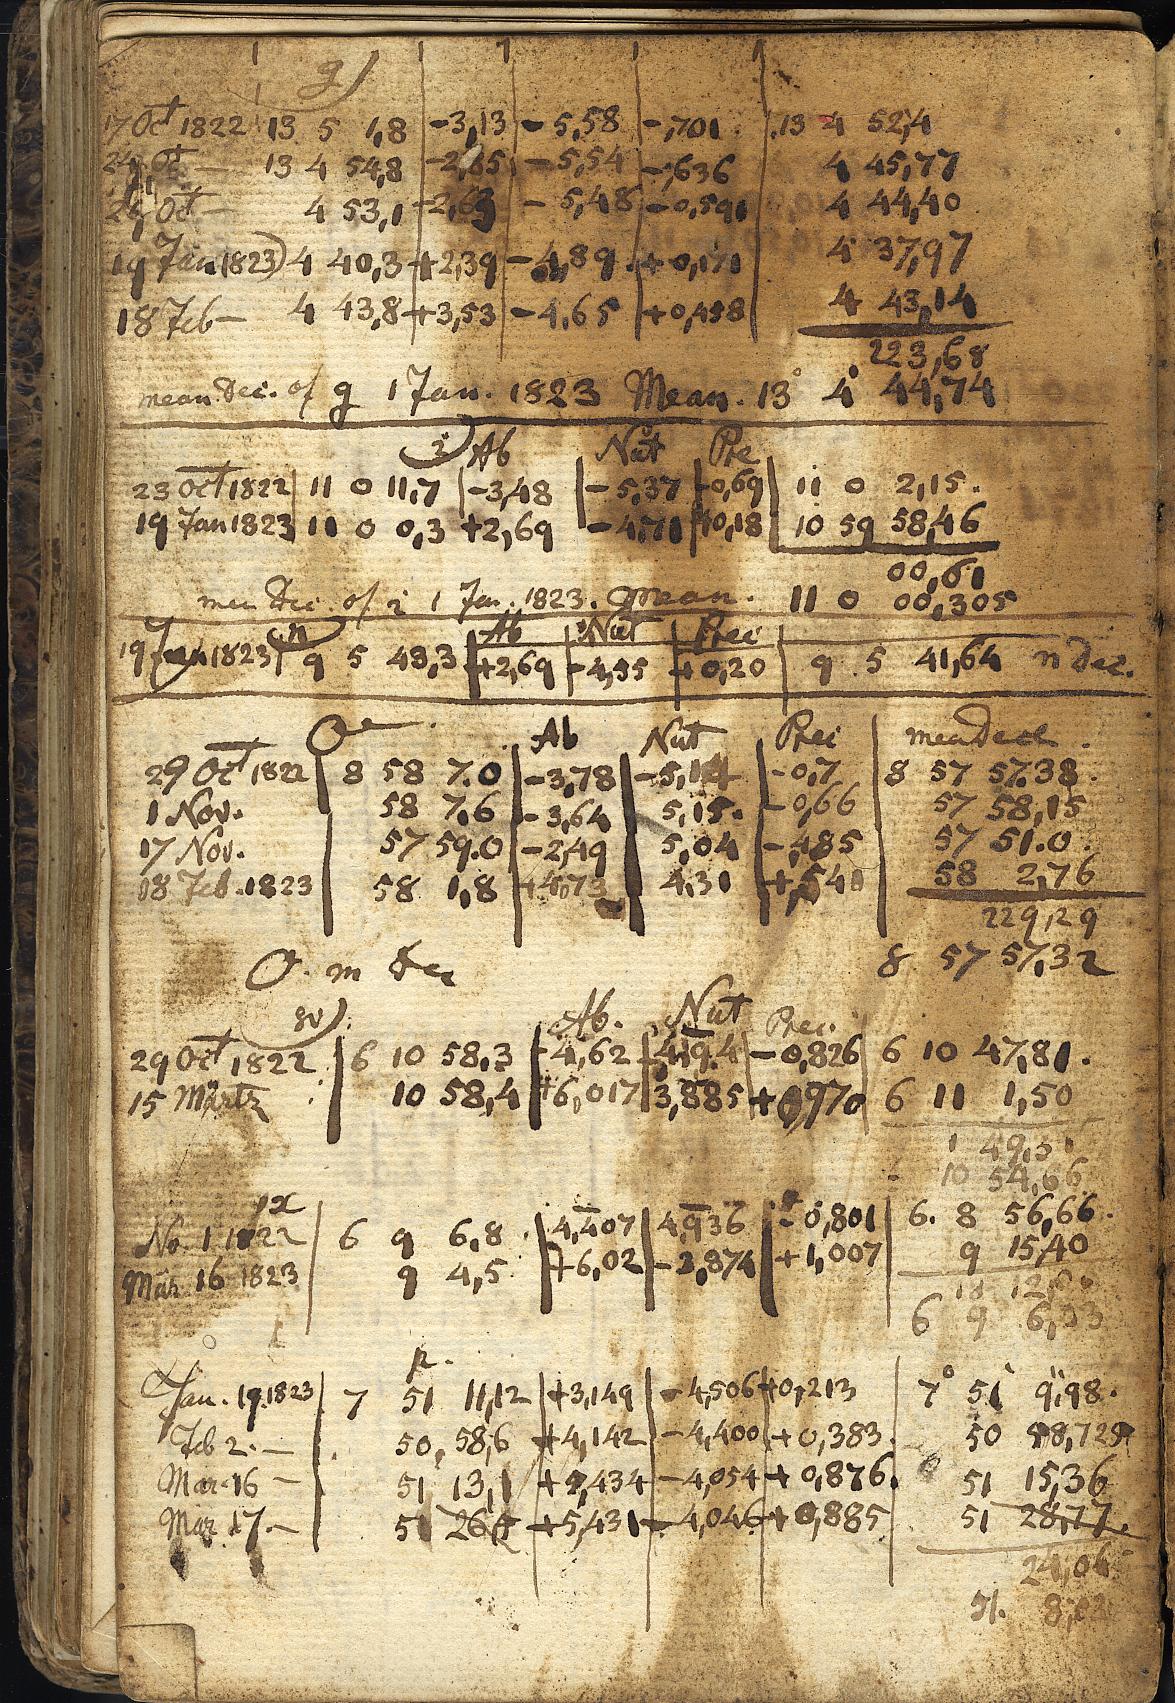 g
17 Oct 1822 13 5 1,8 -3,13 -5,58 -,701 13 4 52,4
24 Oct — 13 4 54,8 -2,85 -5,54 -,636 4 45,77
Oct — 4 53,1 -5,48 -0,591 4 44,40
19 Jan 1823 4 40,3 +2,39 -4,89 +0,171 4 37,97
18 Feb — 4 43,8 +3,53 -4,65 +0,458 4 43,14
223,68
mean Dec. of g 1 Jan. 1823 Mean. 13° 4' 44,74
i Ab Nut Pre
23 Oct 1822 11 0 11,7 -3,48 -5,37 -0,69 11 0 2,15.
19 Jan 1823 11 0 0,3 +2,69 -4,71 +0,18 10 59 58,46
00,61
mea Dec. of i 1 Jan. 1823. Mean. 11 0 00,305
n Ab Nut Prec
19 Jan 1823 9 5 43,3 +2,69 -4,55 +0,20 9 5 41,64 n Dec.
O Ab Nut Prec mea Decl.
29 Oct 1822 8 58 7.0 -3,78 -5,14 -0,7 8 57 57.38.
1 Nov. 58 7,6 -3,64 5,15. -0,66 57 58,15
17 Nov. 57 59.0 -2,49 5,04 -,485 57 51.0.
18 Feb. 1823 58 1,8 +4,73 4,31 +,540 58 2,76
229,29
O. m Dec 8 57 57,32
Ab. Nut Prec.
29 Oct 1822 6 10 58,3 -4,62 -0,826 6 10 47,81.
15 Märtz 10 58,4 +6,017 3,885 +0,970 6 11 1,50
1 49,31
10 54,66
x
No. 1 1822 6 9 6,8. 4,407 4,936 -0,801 6. 8 56,66.
Mar. 16 1823 9 4,5 +6,02 -3,874 +1,007 9 15,40
6 9 6,33
p.
Jan. 19. 1823 7 51 11,12 +3,149 -4,506 +0,213 7° 51' 9",98.
Feb 2. — 50, 58,6 +4,142 -4,400 +0,383. 50 58,725
Mar. 16 — 51 13,1 +5,434 -4,054 +0,876. 51 15,36
Mar 17. — 51 26,5 +5,431 -4,046 +0,885 51 28,77.
24,06
51. 8,02